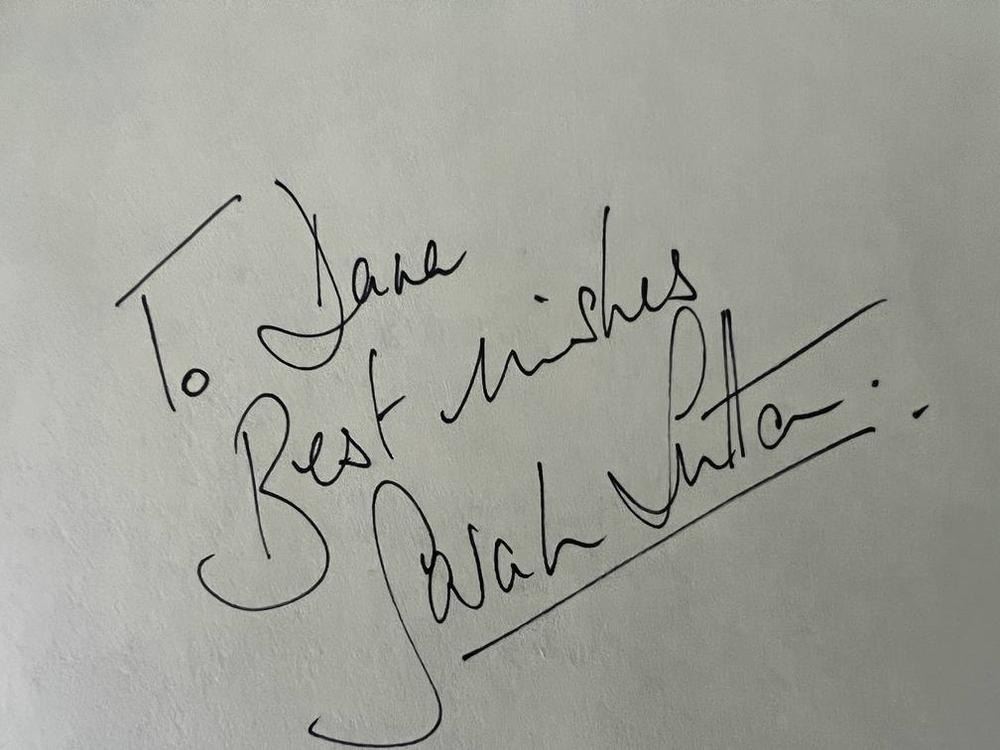 To Dana
Best wishes
Sarah Sutton